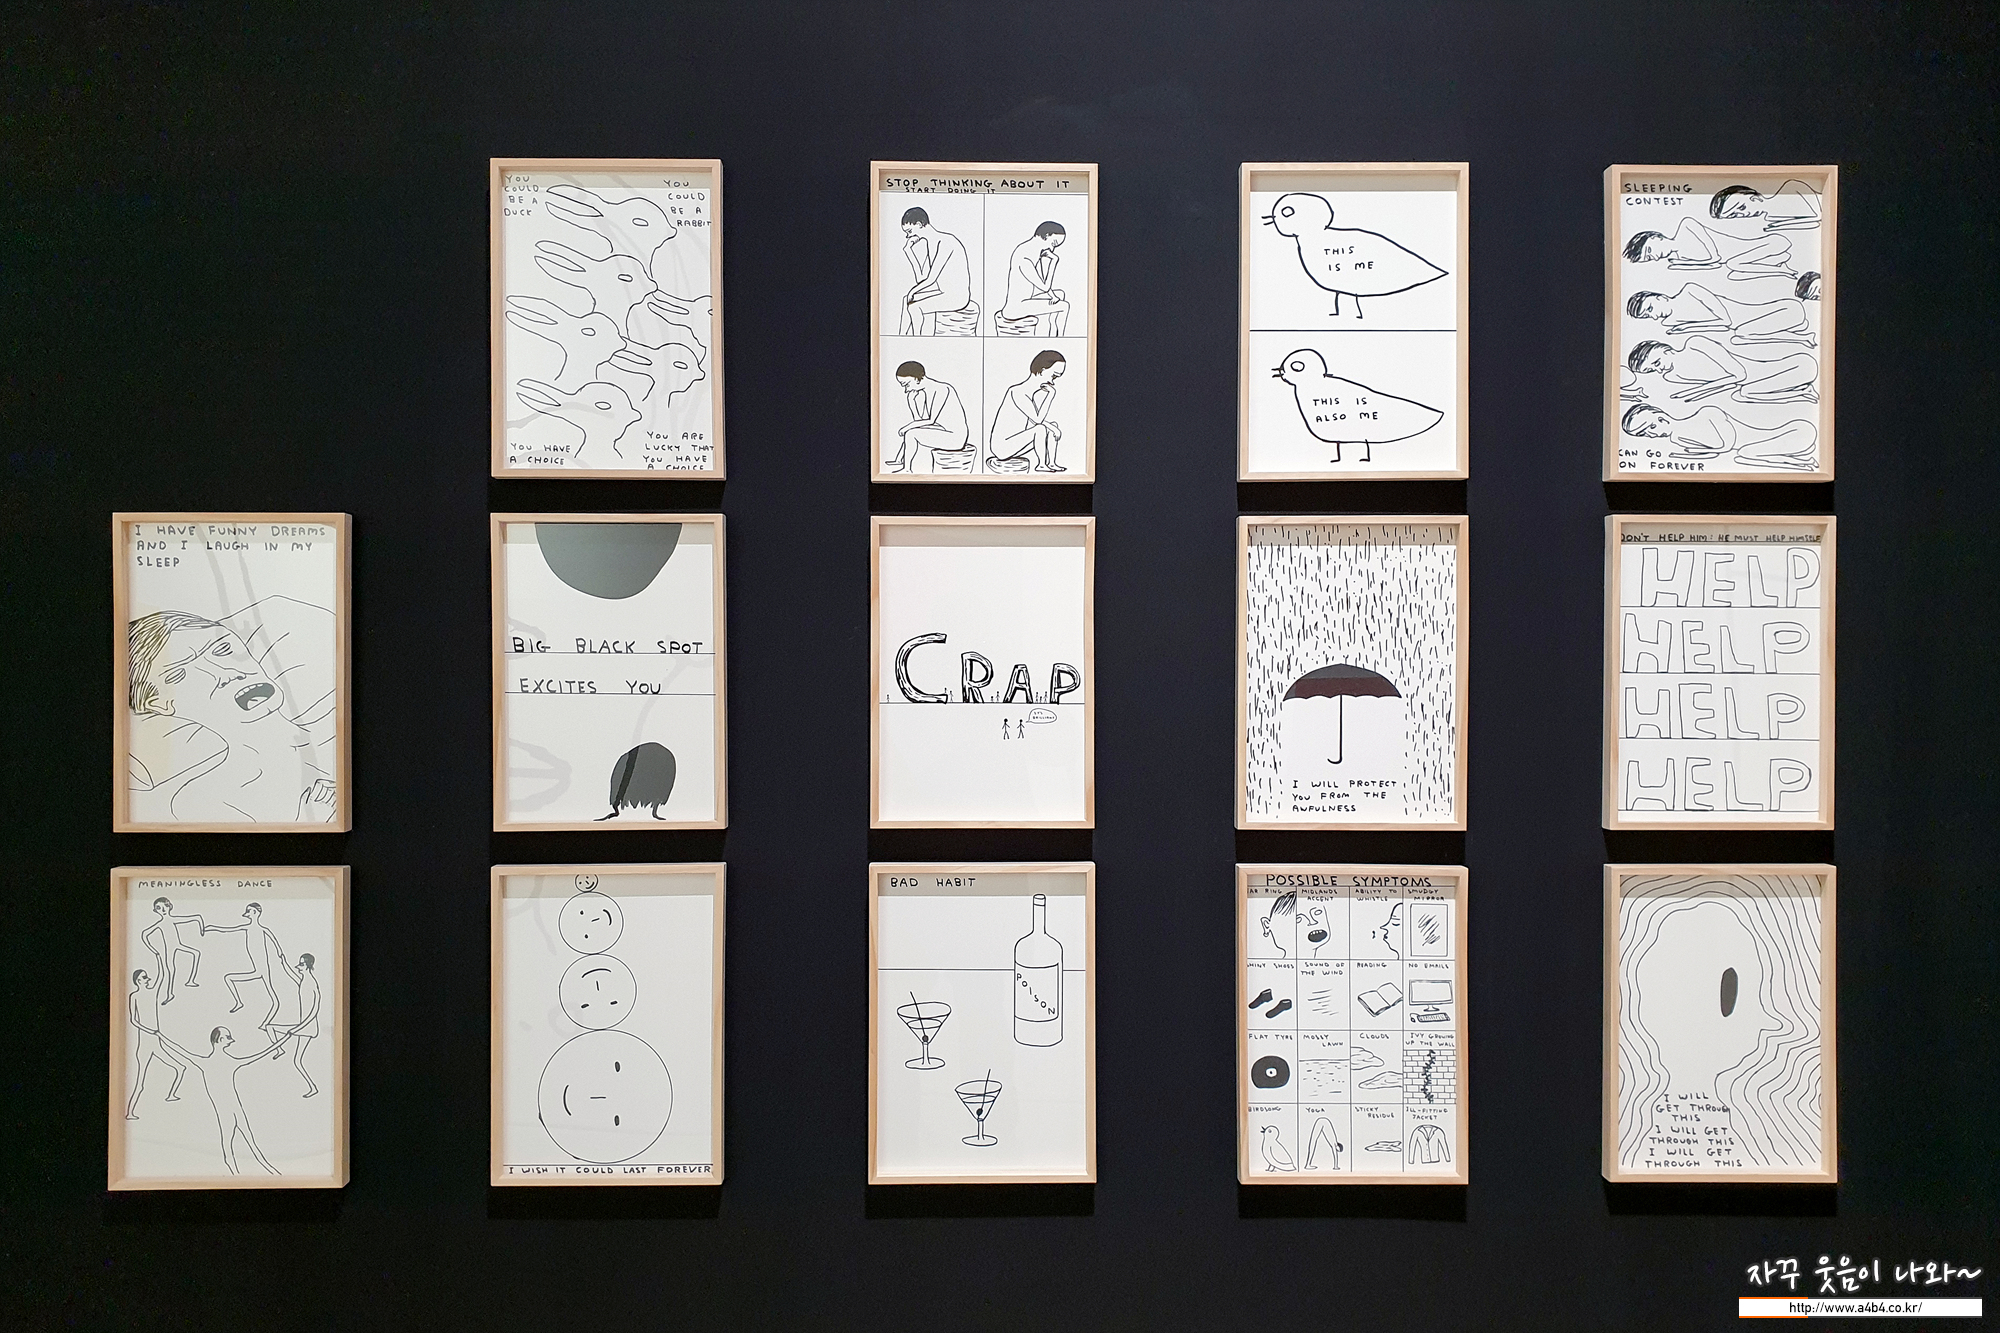 YOU
COULD
BE A
DUCK
YOU
COULD
BE A
RABBIT
YOU HAVE
A CHOICE
YOU ARE
LUCKY THAT
YOU HAVE
A CHOICE
STOP THINKING ABOUT IT
START DOING IT
THIS
IS ME
THIS IS
ALSO ME
SLEEPING
CONTEST
CAN GO
ON FOREVER
I HAVE FUNNY DREAMS
AND I LAUGH IN MY
SLEEP
BIG BLACK SPOT
EXCITES YOU
CRAP
IT'S
BRILLIANT
I WILL PROTECT
YOU FROM THE
AWFULNESS
DON'T HELP HIM: HE MUST HELP HIMSELF
HELP
HELP
HELP
HELP
MEANINGLESS DANCE
I WISH IT COULD LAST FOREVER
BAD HABIT
POISON
POSSIBLE SYMPTOMS
EAR RING
MIDLANDS
ACCENT
ABILITY TO
WHISTLE
SMUDGY
MIRROR
SHINY SHOES
SOUND OF
THE WIND
READING
NO EMAILS
FLAT TYRE
MOSSY
LAWN
CLOUDS
IVY GROWING
UP THE WALL
BIRDSONG
YOGA
STICKY
RESIDUE
ILL-FITTING
JACKET
I WILL
GET THROUGH
THIS
I WILL GET
THROUGH THIS
I WILL GET
THROUGH THIS
자꾸 웃음이 나와~
http://www.a4b4.co.kr/